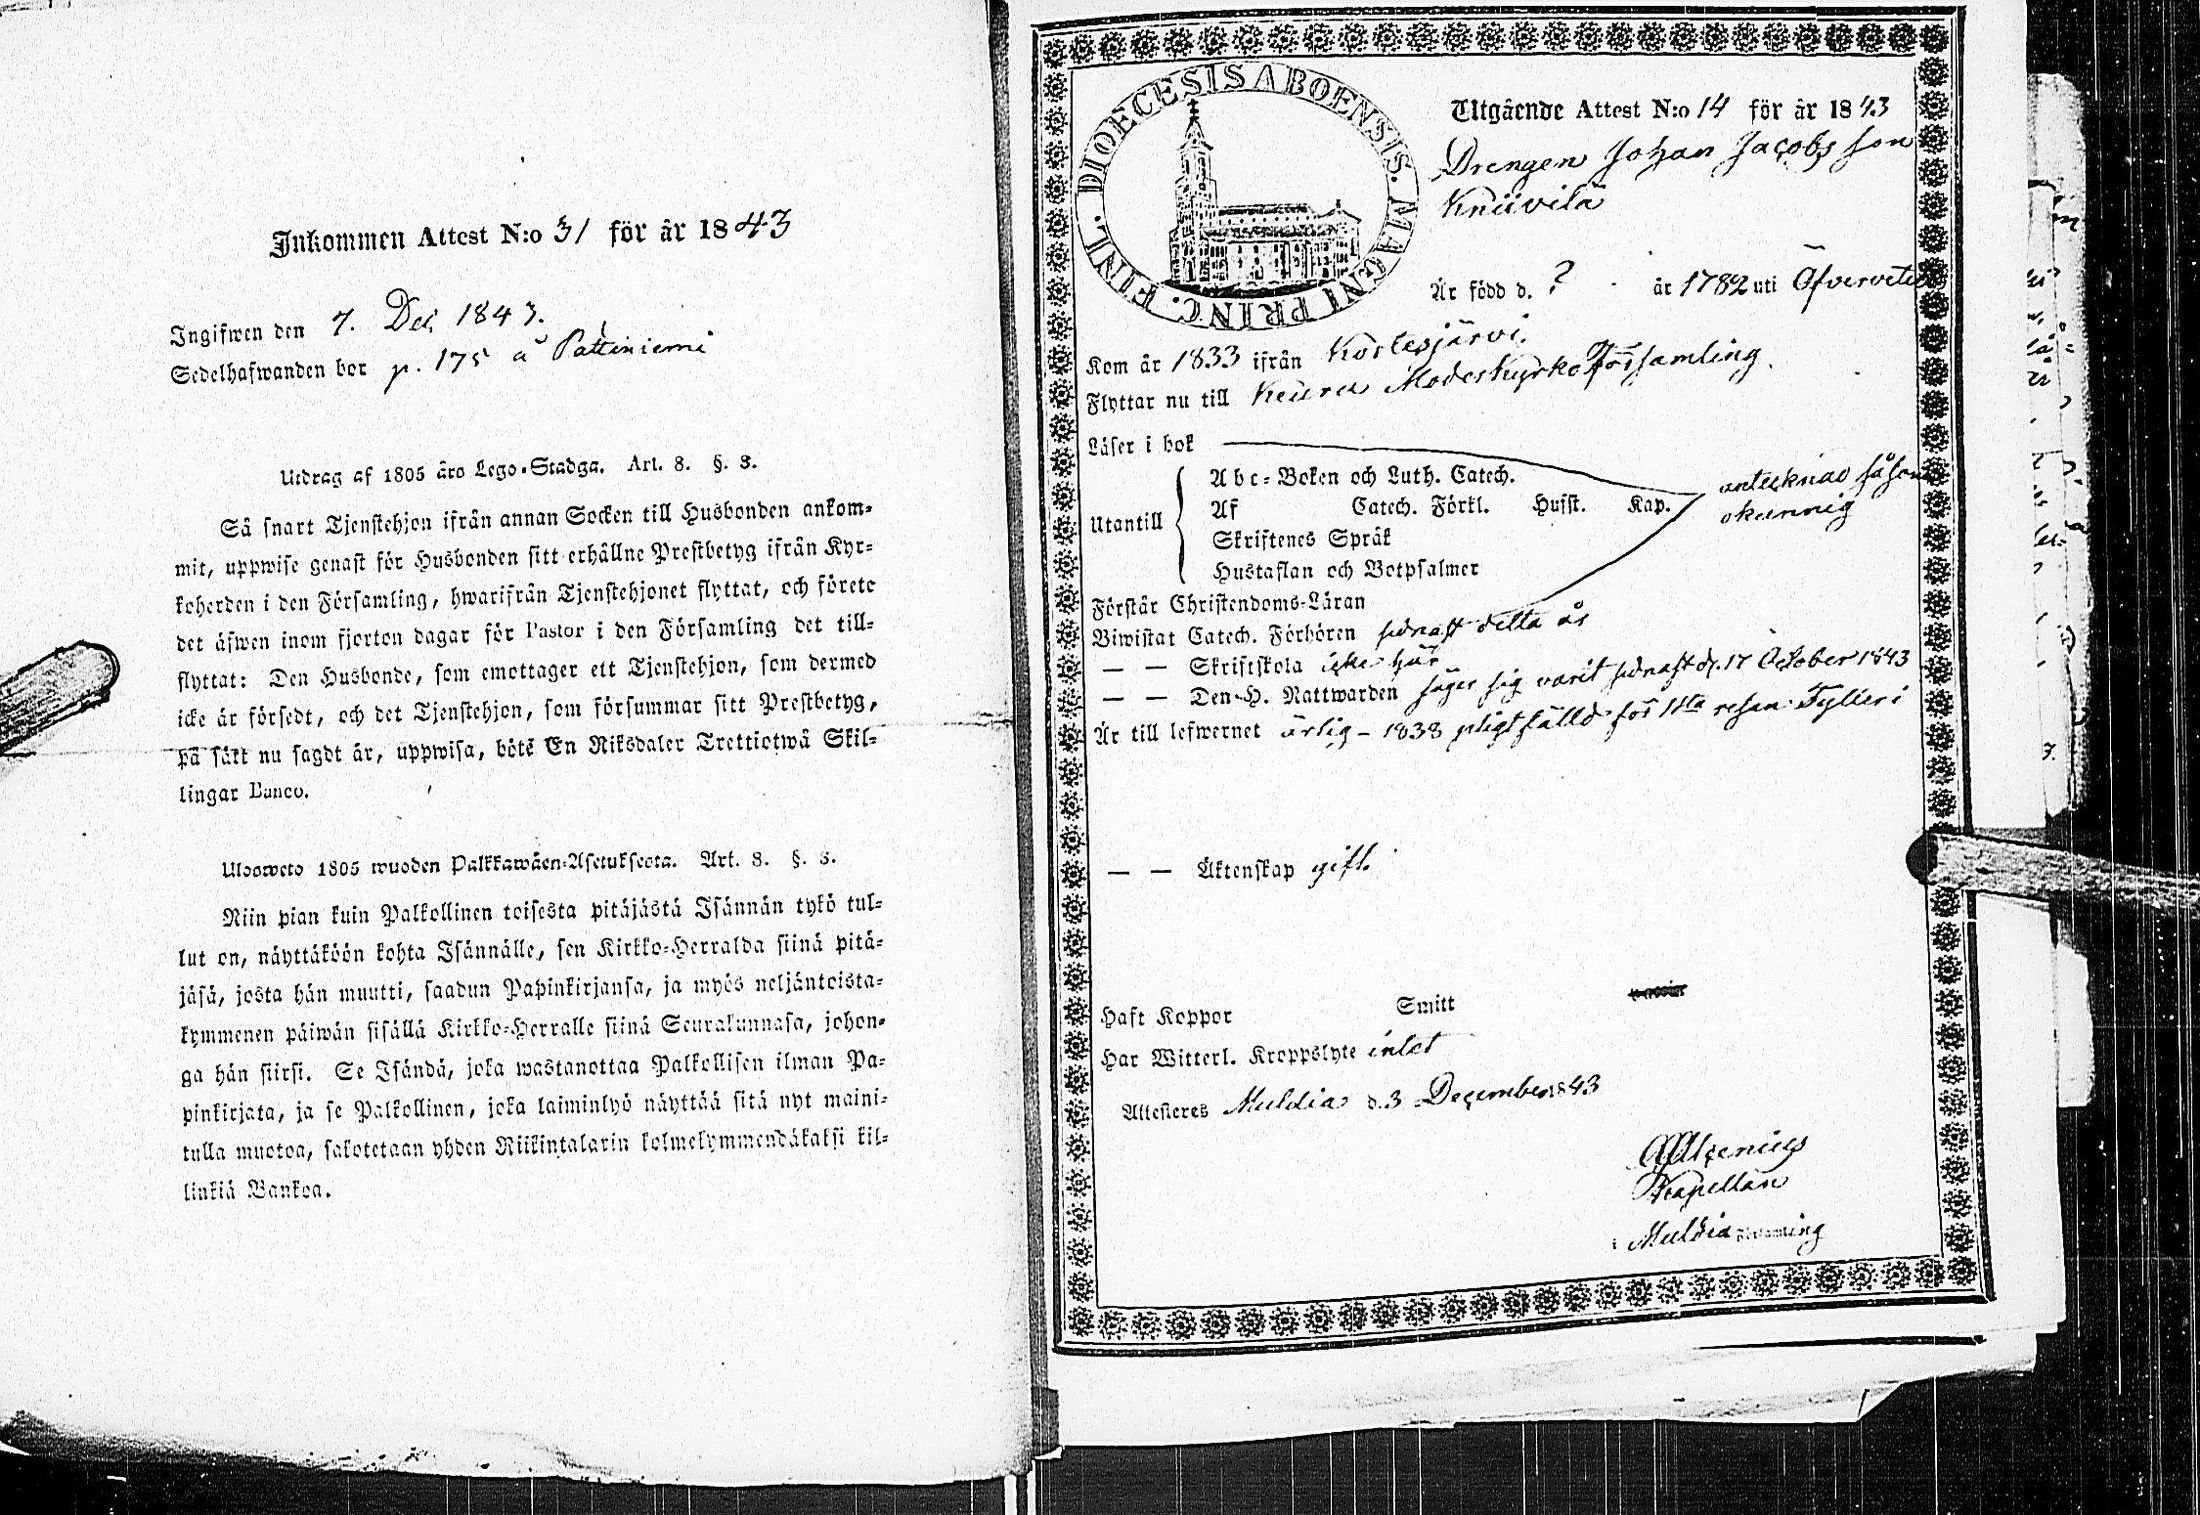 Inkommen Attest N:o 31 för år 1843
Ingifwen den 7. Dec. 1843.
Sedelhafwanden bor p. 175 å Pattiniemi
Utdrag af 1805 års Lego-Stadga. Art. 8. §. 3.
Så snart Tjenstehjon ifrån annan Socken till Husbonden ankom-
mit, uppwise genast för Husbonden sitt erhållne Prestbetyg ifrån Kyr-
koherden i den Församling, hwarifrån Tjenstehjonet flyttat, och förete
det äfwen inom fjorton dagar för Pastor i den Församling det till-
flyttat: Den Husbonde, som emottager ett Tjenstehjon, som dermed
icke är försedt, och det Tjenstehjon, som försummar sitt Prestbetyg,
på sätt nu sagdt är, uppwisa, böte En Riksdaler Trettiotwå Skil-
lingar Banco.
Ulosweto 1805 wuoden Palkkawäen-Asetuksesta. Art. 8. §. 3.
Niin pian kuin Palkollinen toisesta pitäjästä Isännän tykö tul-
lut on, näyttäköön kohta Isännälle, sen Kirkko-Herralda siinä pitä-
jäsä, josta hän muutti, saadun Papinkirjansa, ja myös neljäntoista-
kymmenen päiwän sisällä Kirkko-Herralle siinä Seurakunnasa, johon-
ga hän siirsi. Se Isändä, joka wastanottaa Palkollisen ilman Pa-
pinkirjata, ja se Palkollinen, joka laiminlyö näyttää sitä nyt maini-
tulla muotoa, sakotetaan yhden Riikintalarin kolmekymmendäkaksi kil-
linkiä Bankoa.
DIOECESIS ABOENSIS. MAGNI PRINC. FINL.
Utgående Attest N:o 14 för år 1843
Drengen Johan Jacobsson
Kniivilä
Är född d. ? år 1782 uti Öfvervetil
Kom år 1833 ifrån Kortesjärvi.
Flyttar nu till Keuru Moderkyrko Församling.
Läser i bok
Utantill
Abc-Boken och Luth. Catech.
Af Catech. Förkl. Husst. Kap.
antecknad såsom
okunnig
Skriftenes Språk
Hustaflan och Botpsalmer
Förstår Christendoms-Läran
Biwistat Catech. Förhören sednast detta år
— — Skriftskola icke här
— — Den H. Nattwarden säger sig varit sednast d. 17 October 1843
Är till lefwernet ärlig - 1838 pligtfälld för 1sta resan Fylleri
— — Äktenskap gift.
Haft Koppor Smitt
Har Witterl. Kroppslyte intet
Attesteres Muldia d. 3 December 1843
Kapellan
i Muldia Församling